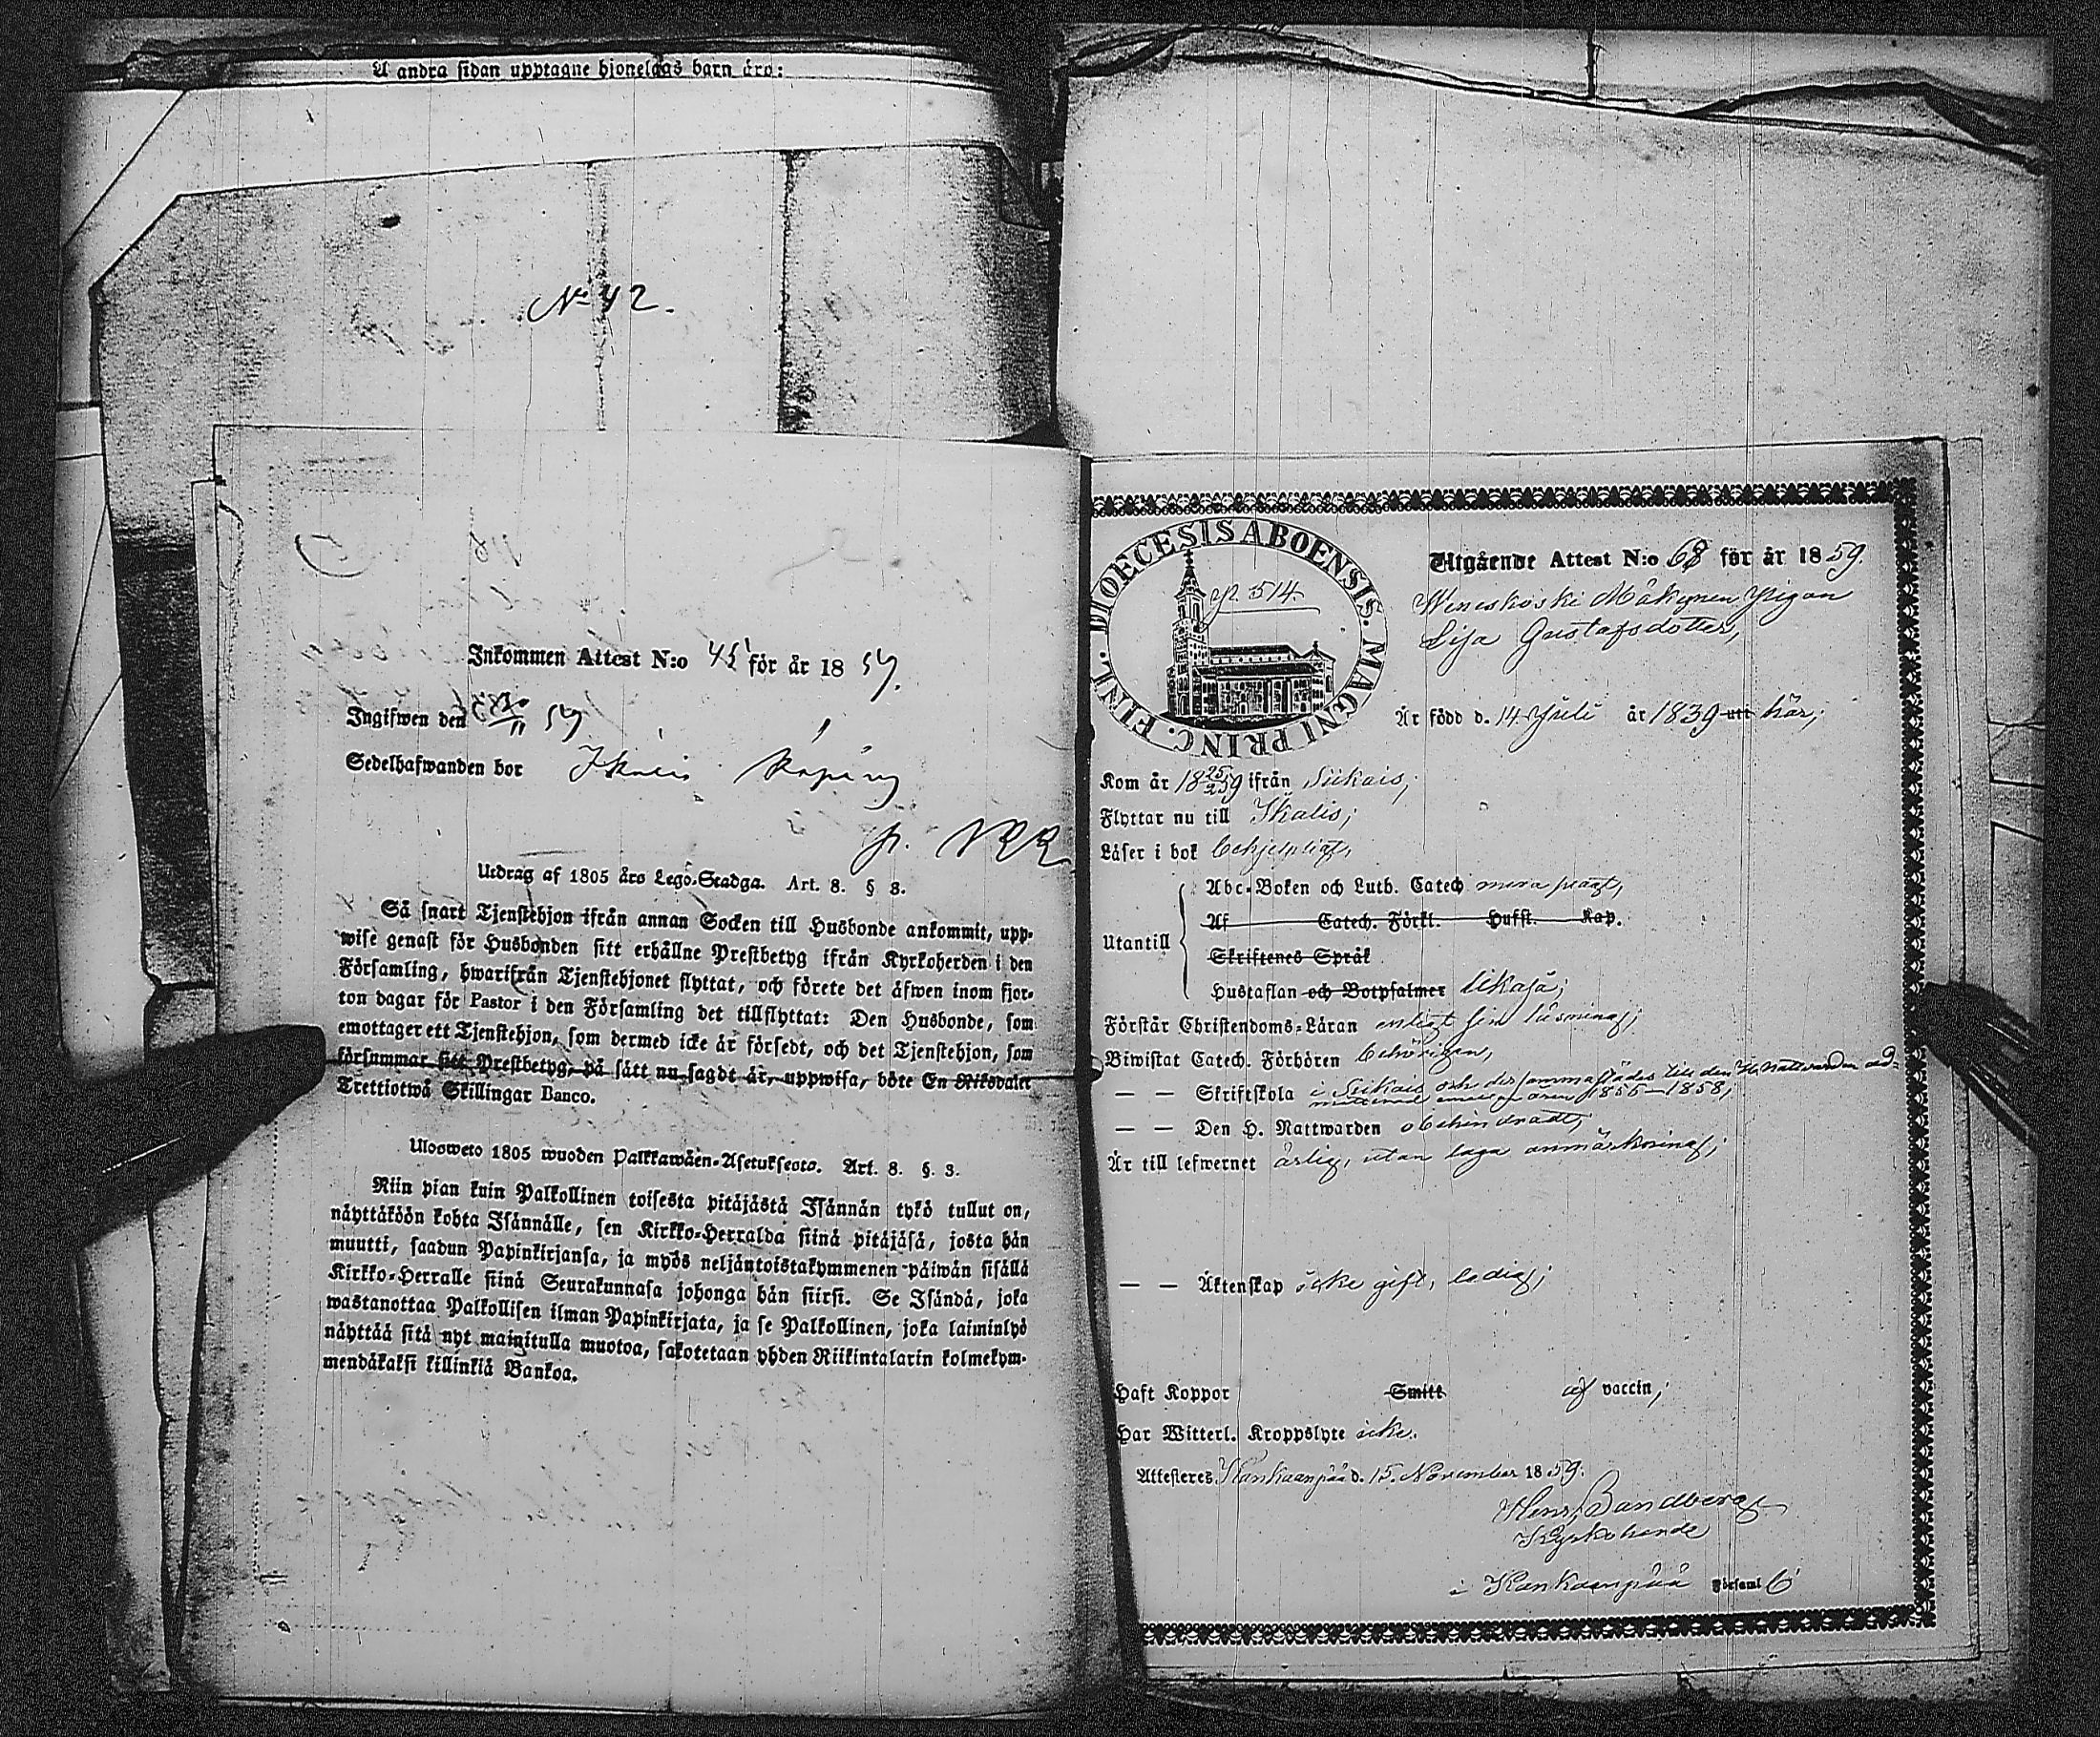 A andra sidan upptagne hjonelags barn äro:
No 42.
Inkommen Attest N:o 45 för år 1859.
Ingifwen den 59
Sedelhafwanden bor Ikalis Köping
p.
Utdrag af 1805 års Lego-Stadga. Art. 8. § 3.
Så snart Tjenstehjon ifrån annan Socken till Husbonde ankommit, upp-
wise genast för Husbonden sitt erhållne Prestbetyg ifrån Kyrkoherden i den
Församling, hwarifrån Tjenstehjonet flyttat, och förete det äfwen inom fjor-
ton dagar för Pastor i den Församling det tillflyttat: Den Husbonde, som
emottager ett Tjenstehjon, som dermed icke är försedt, och det Tjenstehjon, som
försummar sitt Prestbetyg, på sätt nu sagdt är, uppwisa, böte En Riksdaler
Trettiotwå Skillingar Banco.
Uloosweto 1805 wuoden Palkkawäen-Asetuksesta. Art. 8. §. 3.
Niin pian kuin Palkollinen toisesta pitäjästä Isännän tykö tullut on,
näyttäköön kohta Isännälle, sen Kirkko-Herralda siinä pitäjäsä, josta hän
muutti, saadun Papinkirjansa, ja myös neljäntoistakymmenen päiwän sisällä
Kirkko-Herralle siinä Seurakunnasa johonga hän siirsi. Se Isändä, joka
wastanottaa Palkollisen ilman Papinkirjata, ja se Palkollinen, joka laiminlyö
näyttää sitä nyt mainitulla muotoa, sakotetaan yhden Riikintalarin kolmekym-
mendäkaksi killinkiä Bankoa.
DIOECESIS ABOENSIS. MAGNI PRINC. FINL.
p. 514.
Utgående Attest N:o 68 för år 1859.
Weneskoski Mäkynen Pigan
Lisa Gustafsdotter,
Är född d. 14 Juli år 1839 utt här;
Kom år 1859 ifrån Siikais;
Flyttar nu till Ikalis;
Läser i bok behjelpligt,
Abc-Boken och Luth. Catech mera svagt,
Af Catech. Förkl. Hufst. Kap.
Utantill
Skriftenes Språk
Hustaflan och Botpsalmer likaså;
Förstår Christendoms-Läran enligt sin läsning;
Biwistat Catech. Förhören behörigen,
— — Skriftskola i Siikais och dersammastädes till den H. Nattvarden ad-
åren 1855—1858;
— — Den H. Nattwarden obehindradt;
Är till lefwernet ärlig, utan laga anmärkning;
— — Äktenskap icke gift, ledig;
Haft Koppor Smitt af vaccin;
Har Witterl. Kroppslyte icke.
Attesteras. Kankaanpää d. 15. November 1859.
Henr. Sandberg
Kyrkoherde
i Kankaanpää Församl